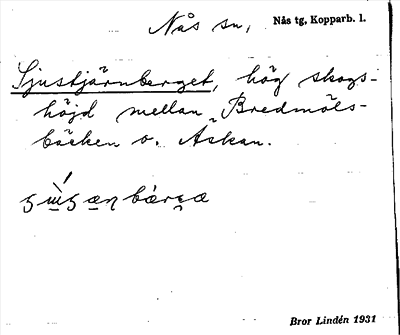 Nås sn, Nås tg, Kopparb. l.
Sjustjärnberget, hög skogs-
höjd mellan Bredmöls-
bäcken o. Åskan.
Bror Lindén 1931